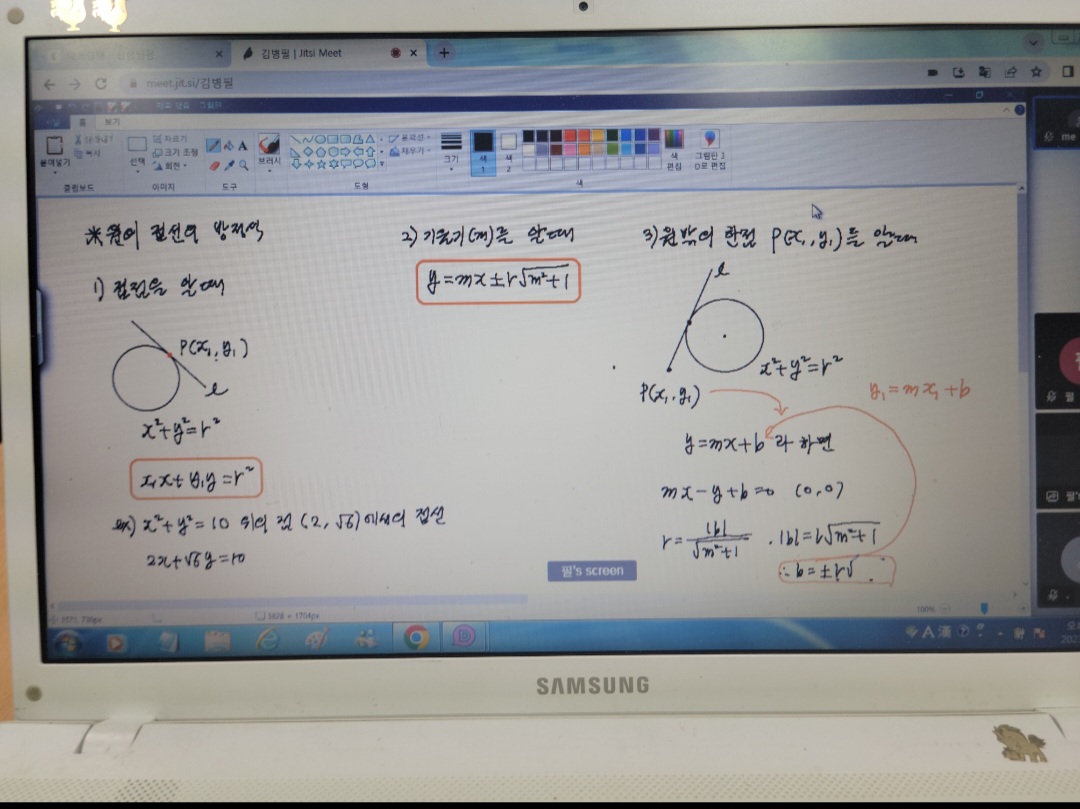 김병필 | Jitsi Meet
meet.jit.si/김병필
홈 보기
붙여넣기
복사
클립보드
선택
자르기
크기 조정
회전
이미지
A
도구
브러시
도형
윤곽선
채우기
크기
색 1
색 2
색 편집
그림판 3D로 편집
색
me
※ 원의 접선의 방정식
1) 접점을 알 때
P(x₁, y₁)
l
x²+y²=r²
x₁x+y₁y=r²
ex) x²+y²=10 위의 점 (2, √6)에서의 접선
2x+√6y=10
2) 기울기(m)를 알 때
y=mx±r√m²+1
3) 원 밖의 한 점 P(x₁, y₁)를 알 때
l
x²+y²=r²
P(x₁, y₁)
y₁=mx₁+b
y=mx+b 라 하면
mx-y+b=0 (0,0)
r=|b|/√m²+1 . |b|=r√m²+1
∴ b=±r√
필's screen
100%
A 漢
SAMSUNG